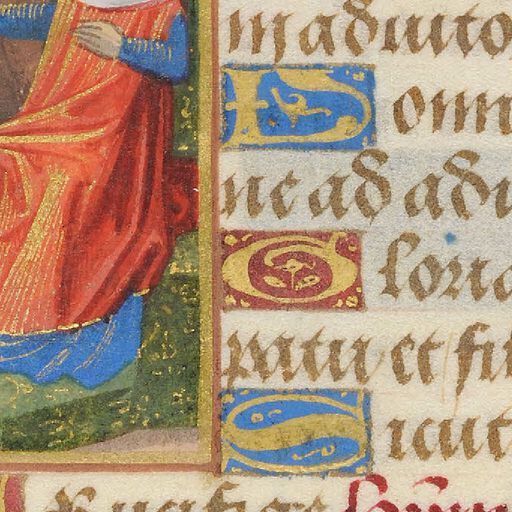 m adiuto
Domi
ne ad adiu
Gloria
patri et fi
Sicut